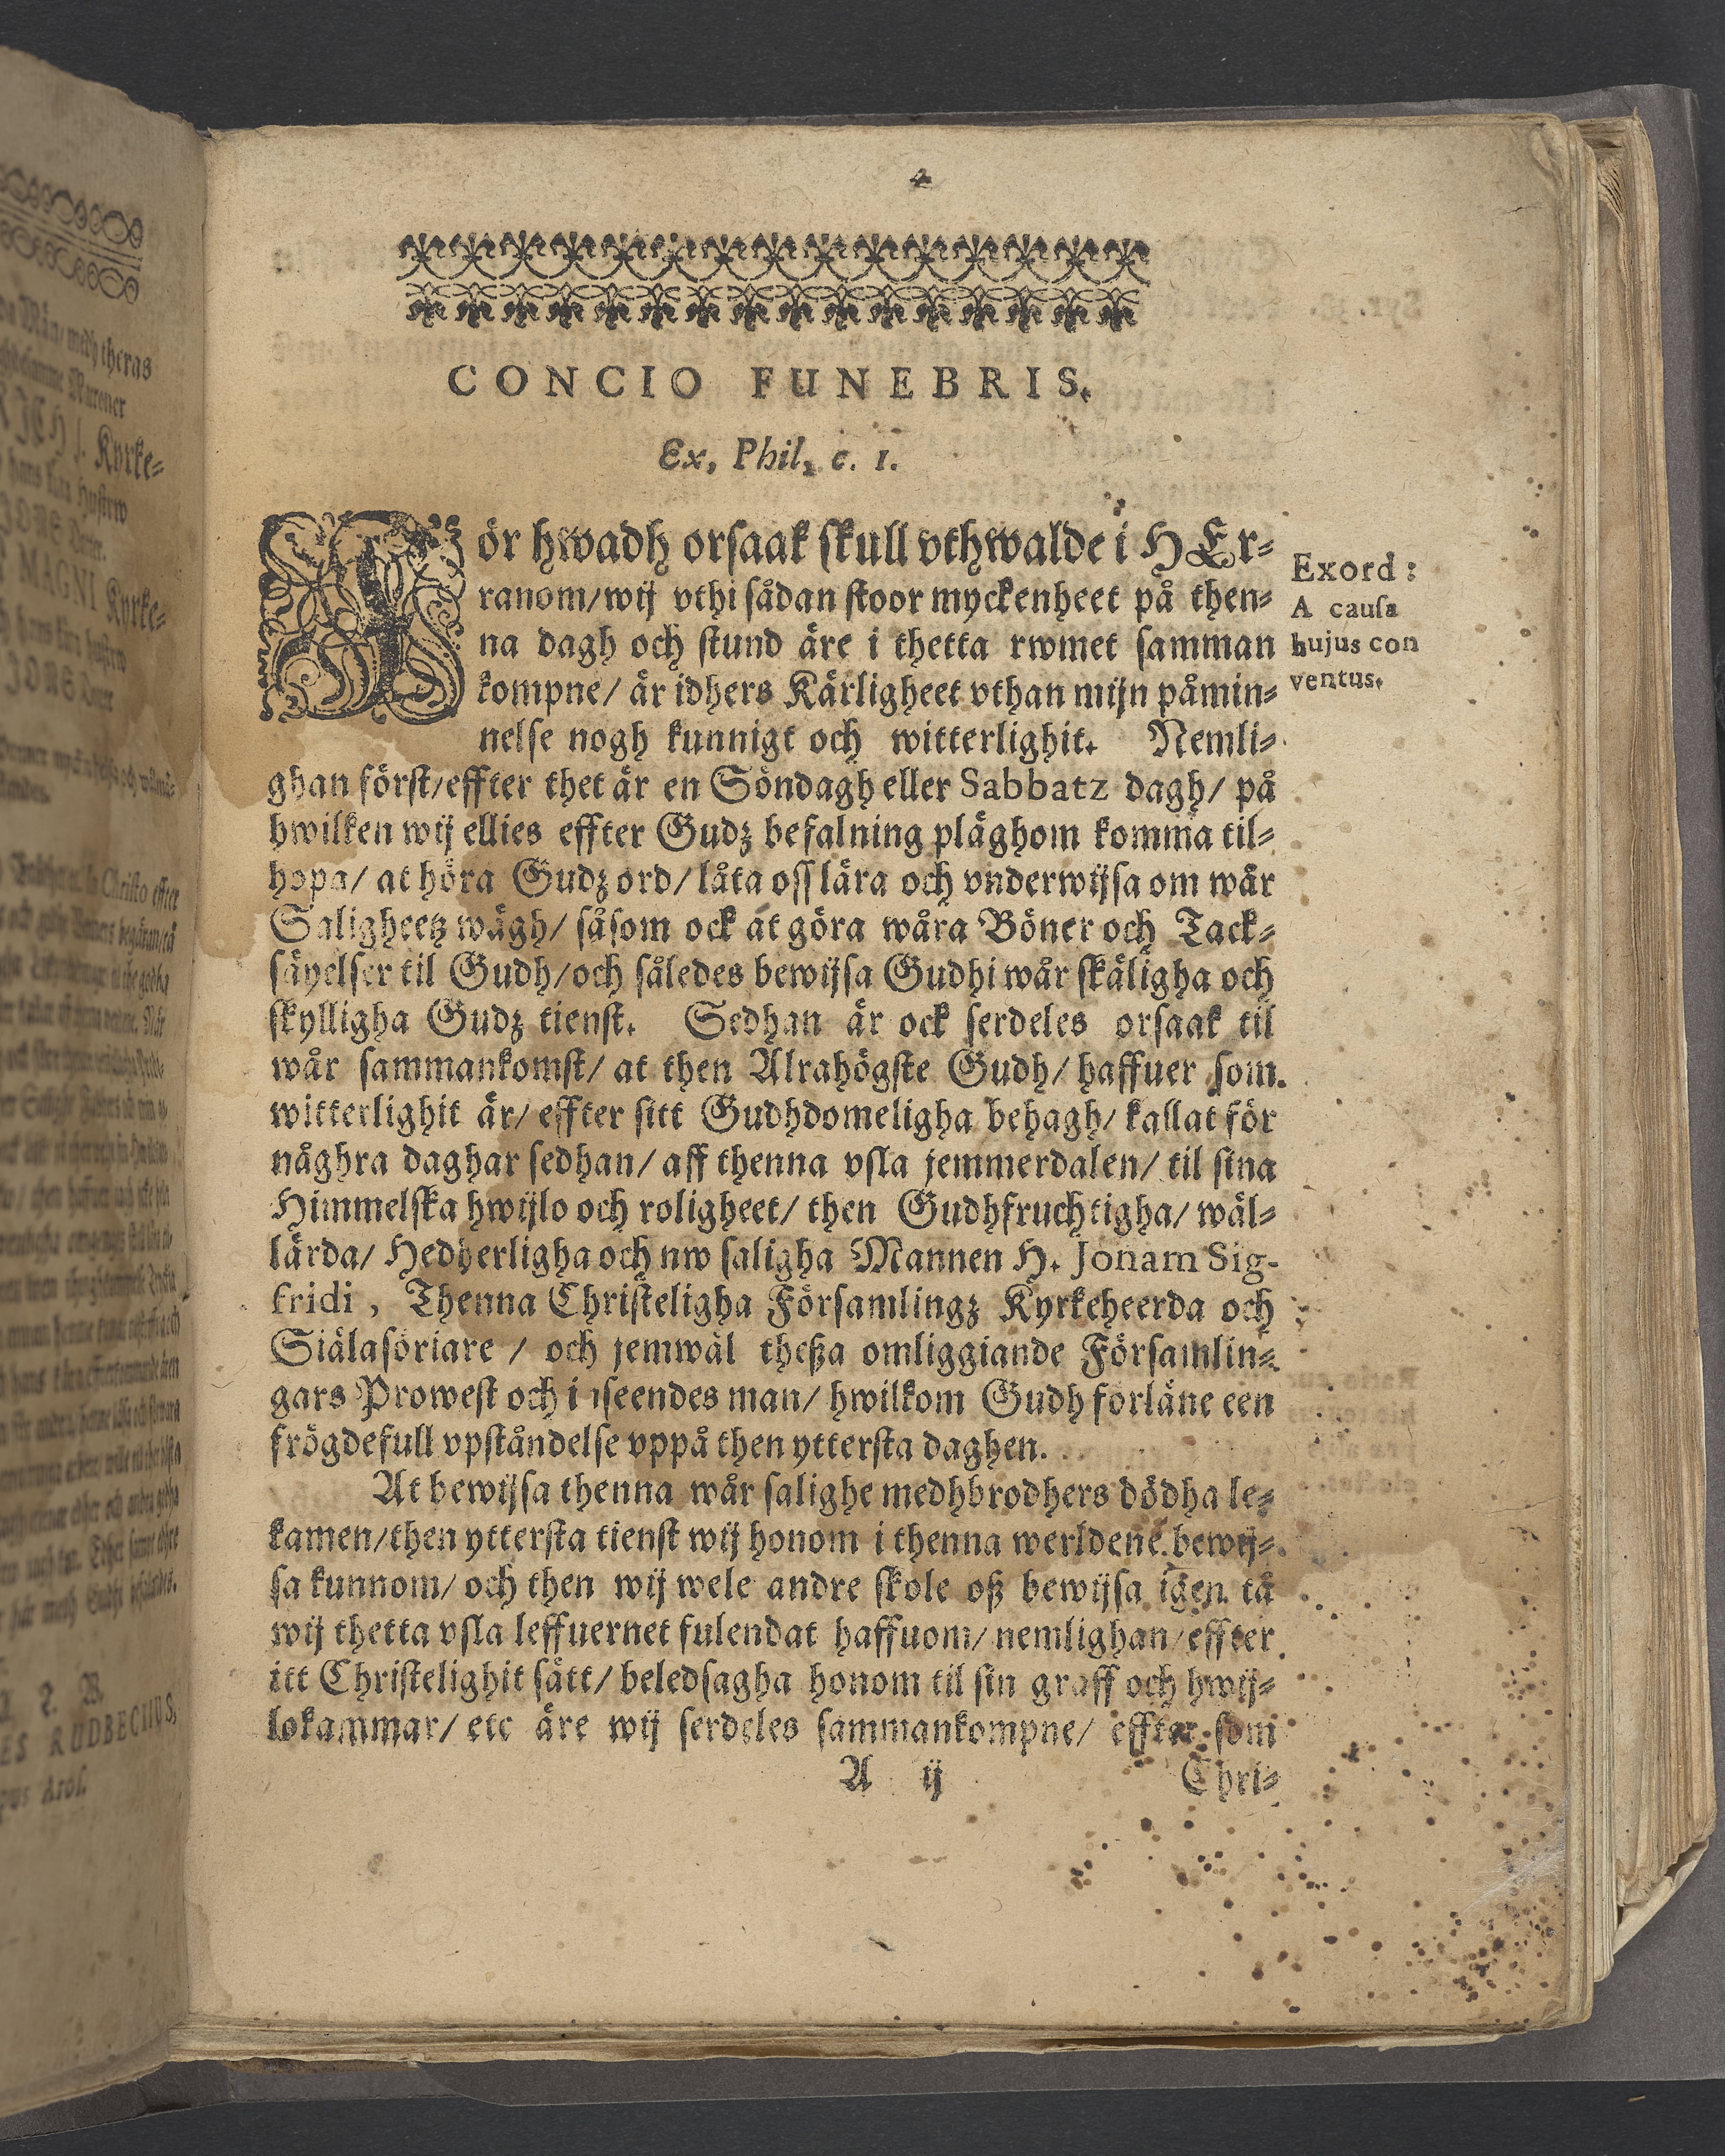 CONCIO FUNEBRIS.
Ex. Phil. c. 1.
För hwadh orsaak skull vthwalde i HEr-
ranom/wij vthi sådan stoor myckenheet på then-
na dagh och stund äre i thetta rwmet samman
kompne/ är idhers Kärligheet vthan mijn påmin-
nelse nogh kunnigt och witterlighit. Nemli-
ghan först/effter thet är en Söndagh eller Sabbatz dagh/ på
hwilken wij ellies effter Gudz befalning pläghom komma til-
hopa/ at höra Gudz ord/ låta oss lära och vnderwijsa om wår
Saligheetz wägh/ såsom ock at göra wåra Böner och Tack-
säyelser til Gudh/och således bewijsa Gudhi wår skäligha och
skylligha Gudz tienst. Sedhan är ock serdeles orsaak til
wår sammankomst/ at then Alrahögste Gudh/ haffuer som
witterlighit är/ effter sitt Gudhdomeligha behagh/ kallat för
någhra daghar sedhan/ aff thenna vsla jemmerdalen/ til sina
Himmelska hwijlo och roligheet/ then Gudhfruchtigha/ wäl-
lärda/ Hedherligha och nw saligha Mannen H. Jonam Sig-
fridi, Thenna Christeligha Församlingz Kyrkeheerda och
Siälasöriare / och jemwäl theßa omliggiande Församlin-
gars Prowest och inseendes man/ hwilkom Gudh förläne een
frögdefull vpståndelse vppå then yttersta daghen.
At bewijsa thenna wår salighe medhbrodhers dödha le-
kamen/then yttersta tienst wij honom i thenna werldene bewij-
sa kunnom/ och then wij wele andre skole oß bewijsa igen tå
wij thetta vsla leffuernet fulendat haffuom/ nemlighan/effter
itt Christelighit sätt/ beledsagha honom til sin graff och hwij-
lokammar/ etc äre wij serdeles sammankompne/ effter som
A ij
Chri-
Exord:
A causa
hujus con
ventus.
theras
Kyrke-
MAGNI Kyrke-
Christo effter
RUDBECIIUS,